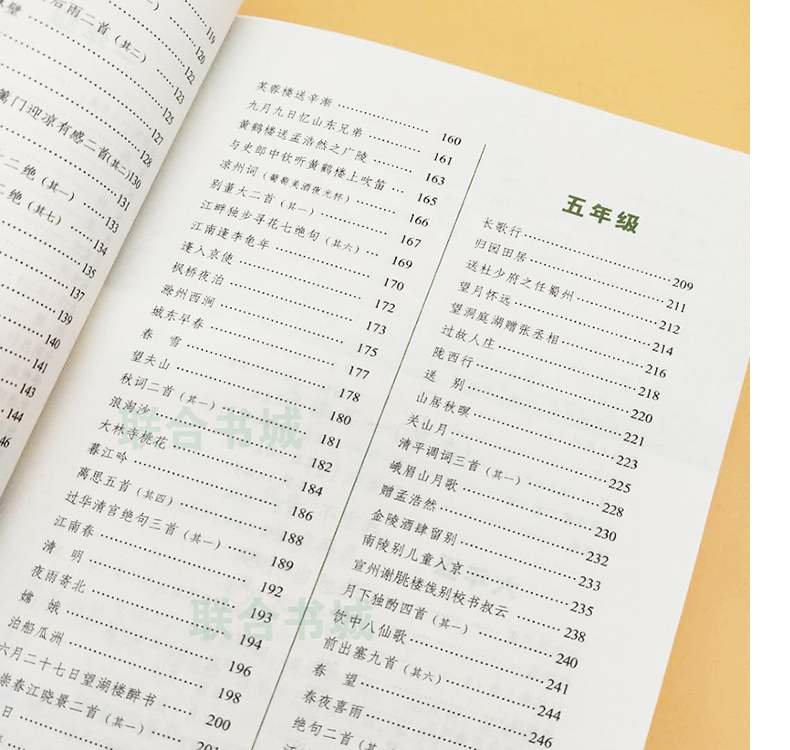 后雨二首（其二）
119
壁
120
122
123
125
127
128
蓟门迎凉有感二首（其二） 130
131
二绝（其一） 133
二绝（其七） 134
135
137
139
140
141
143
144
46
芙蓉楼送辛渐 160
九月九日忆山东兄弟 161
黄鹤楼送孟浩然之广陵 163
与史郎中钦听黄鹤楼上吹笛 165
凉州词（葡萄美酒夜光杯） 166
别董大二首（其一） 167
江畔独步寻花七绝句（其六） 169
江南逢李龟年 170
逢入京使 172
枫桥夜泊 173
滁州西涧 175
城东早春 177
春 雪 178
望夫山 180
秋词二首（其一） 181
浪淘沙 182
大林寺桃花 184
暮江吟 186
离思五首（其四） 188
过华清宫绝句三首（其一） 189
江南春 192
清 明 193
夜雨寄北 194
嫦 娥 196
泊船瓜洲 198
六月二十七日望湖楼醉书 200
崇春江晓景二首（其一） 201
日
五年级
长歌行 209
归园田居 211
送杜少府之任蜀州 212
望月怀远 214
望洞庭湖赠张丞相 216
过故人庄 218
陇西行 220
送 别 221
山居秋暝 223
关山月 225
清平调词三首（其一） 228
峨眉山月歌 230
赠孟浩然 232
金陵酒肆留别 233
南陵别儿童入京 235
宣州谢朓楼饯别校书叔云 238
月下独酌四首（其一） 240
饮中八仙歌 241
前出塞九首（其六） 244
春 望 246
春夜喜雨
绝句二首
联合书城
联合书城